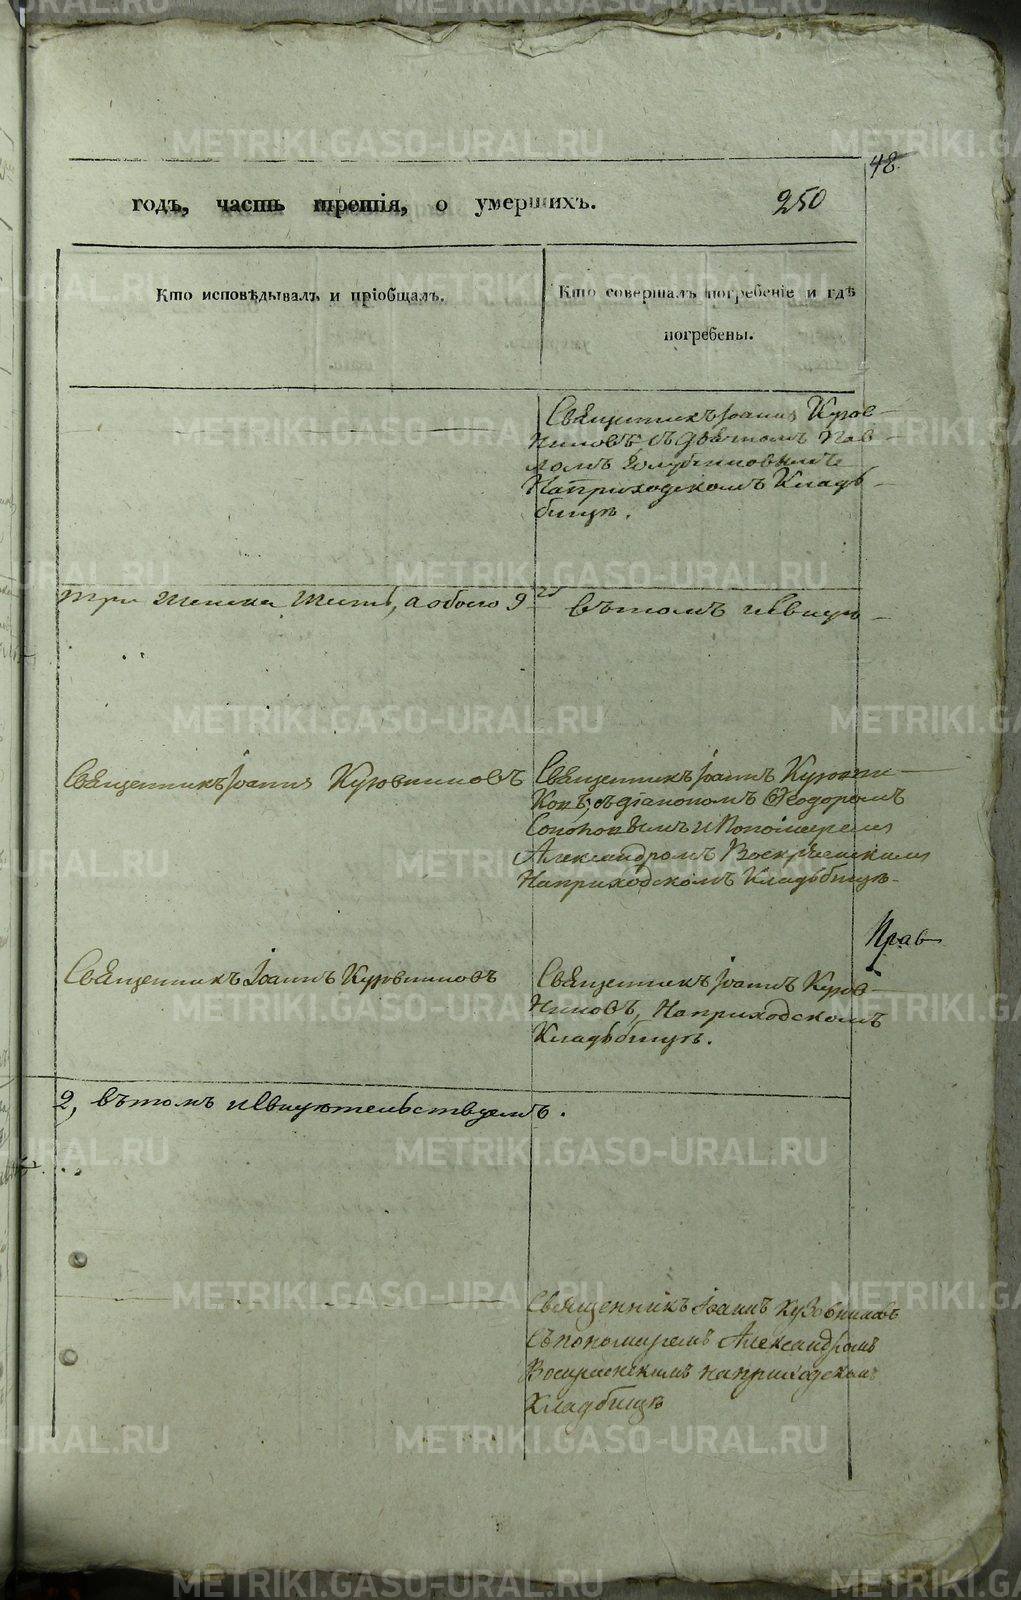 48.
годъ, часть третія, о умершихъ.
250
Кто исповѣдывалъ и пріобщалъ.
Кто совершалъ погребеніе и гдѣ
погребены.
Священникъ Іоаннъ Кузов-
никовъ съ дьячкомъ Пав-
ломъ
На приходскомъ Кладь-
бищѣ.
три женска шесть, а обоего 9
въ томъ и свидѣ-
Священникъ Іоаннъ Кузовниковъ
Священникъ Іоаннъ Кузовни-
ковъ, съ діакономъ Ѳеодоромъ
и Пономаремъ
Александромъ Воскресенскимъ
На приходскомъ Кладьбищѣ.
Прав
Священникъ Іоаннъ Кузовниковъ
Священникъ Іоаннъ Кузов-
никовъ, На приходскомъ
Кладьбищѣ.
2, въ томъ и свидѣтельствуемъ.
Священникъ Іоаннъ Кузовниковъ
съ пономаремъ Александромъ
Воскресенскимъ на приходскомъ
Кладбищѣ
METRIKI.GASO-URAL.RU